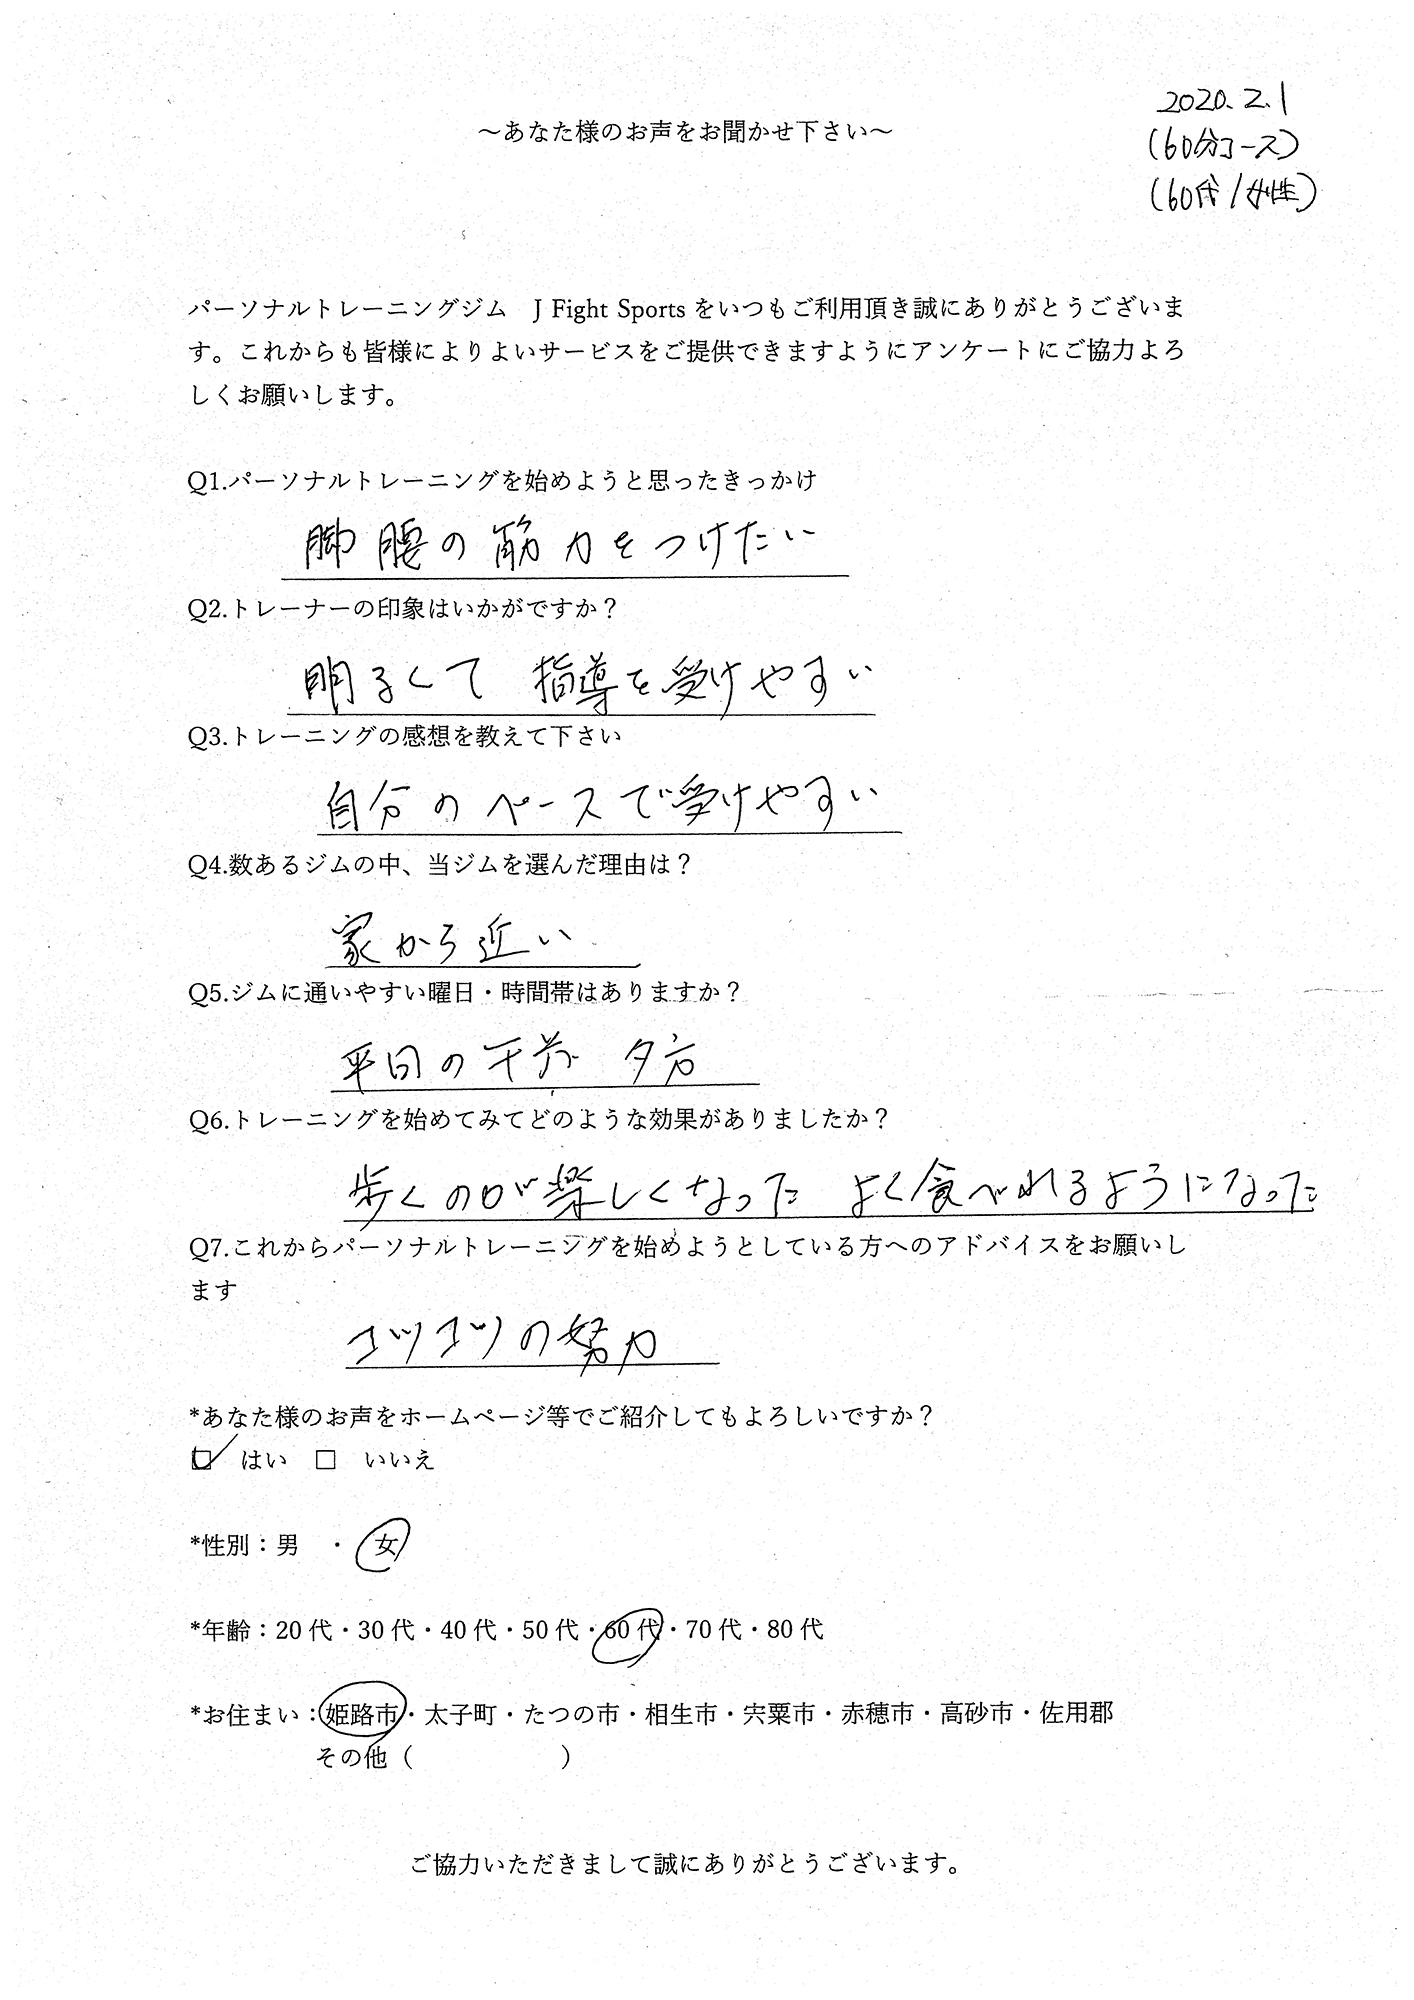 2020.2.1
(60分コース)
(60代/女性)
～あなた様のお声をお聞かせ下さい～
パーソナルトレーニングジム　J Fight Sports をいつもご利用頂き誠にありがとうございま
す。これからも皆様によりよいサービスをご提供できますようにアンケートにご協力よろ
しくお願いします。
Q1.パーソナルトレーニングを始めようと思ったきっかけ
脚腰の筋力をつけたい
Q2.トレーナーの印象はいかがですか？
明るくて 指導を受けやすい
Q3.トレーニングの感想を教えて下さい
自分のペースで受けやすい
Q4.数あるジムの中、当ジムを選んだ理由は？
家から近い
Q5.ジムに通いやすい曜日・時間帯はありますか？
平日の午前 夕方
Q6.トレーニングを始めてみてどのような効果がありましたか？
歩くのが楽しくなった よく食べれるようになった
Q7.これからパーソナルトレーニングを始めようとしている方へのアドバイスをお願いし
ます
コツコツの努力
*あなた様のお声をホームページ等でご紹介してもよろしいですか？
☑ はい □ いいえ
*性別：男 ・ 女
*年齢：20 代・30 代・40 代・50 代・60 代・70 代・80 代
*お住まい：姫路市・太子町・たつの市・相生市・宍粟市・赤穂市・高砂市・佐用郡
その他（　　　　　　）
ご協力いただきまして誠にありがとうございます。